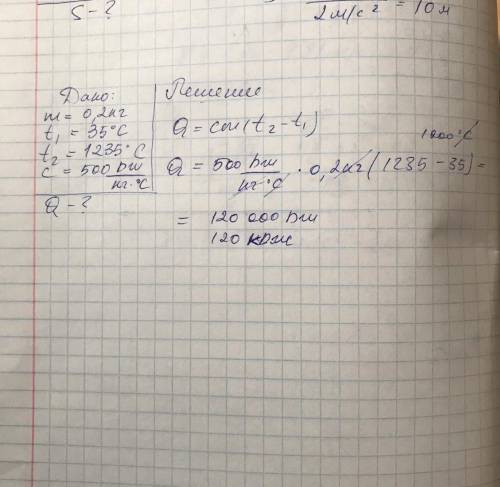 S - ?
2 м/с² = 10 м
Дано:
m = 0,2 кг
t₁ = 35°C
t₂ = 1235°C
c = 500 Дж/кг·°C
Q - ?
Решение
Q = cm(t₂ - t₁)
1000°C
Q = 500 Дж/кг·°C · 0,2 кг (1235 - 35) =
= 120 000 Дж
120 кДж